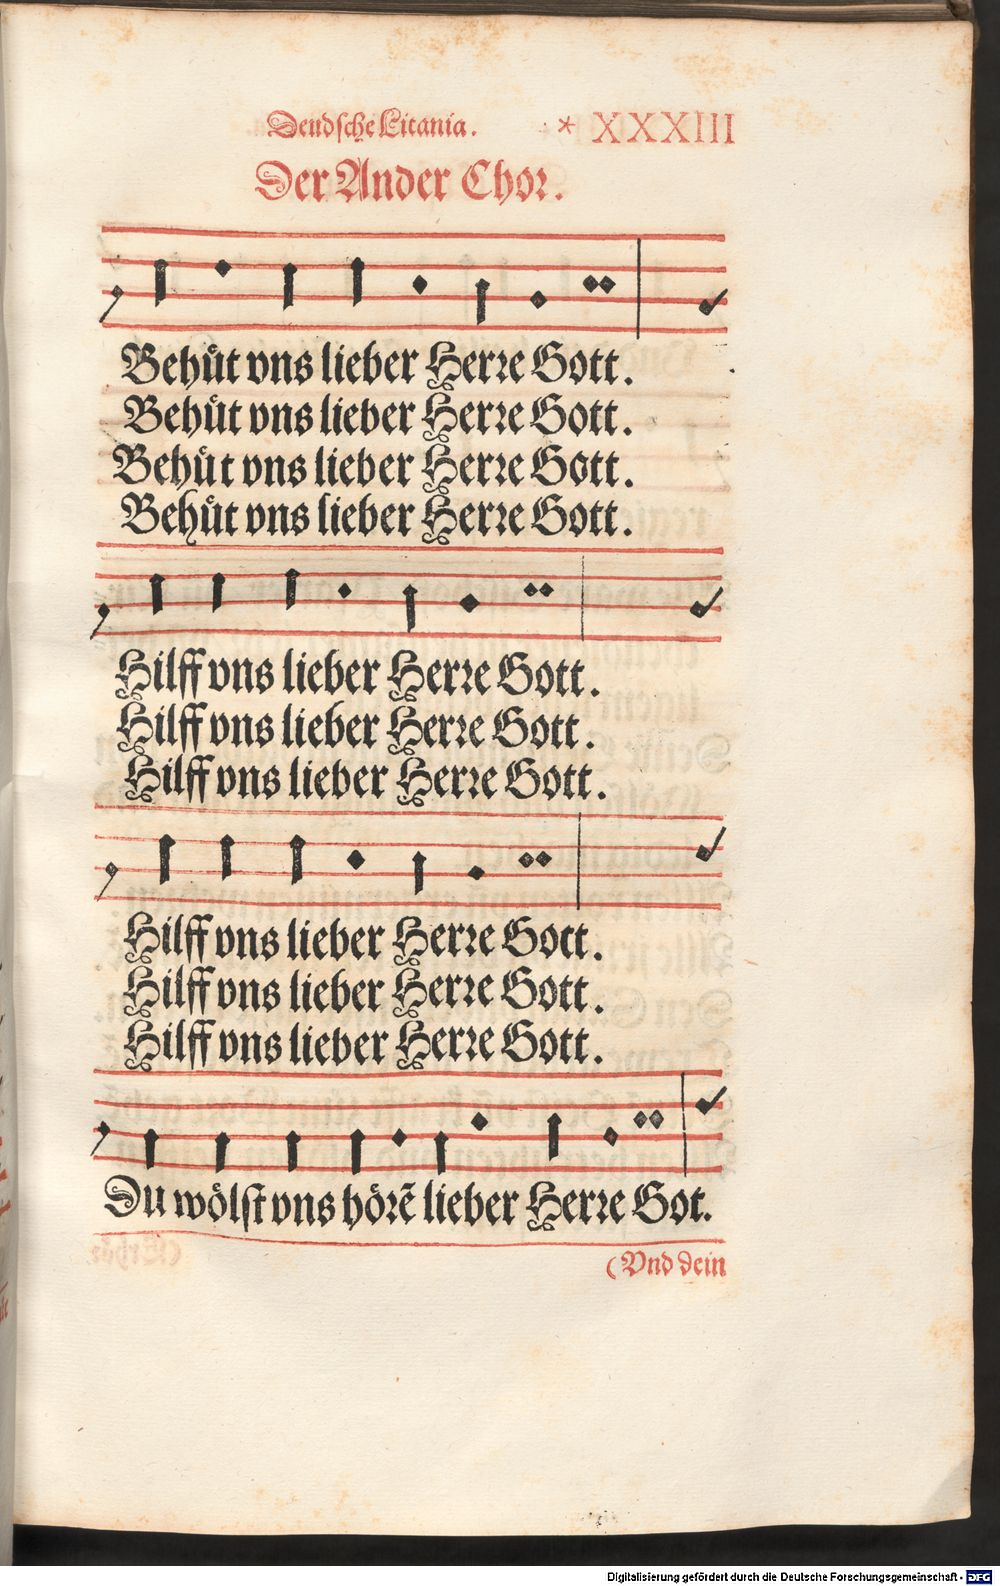 Deudsche Litania. * XXXIII
Der Ander Chor.
Behuͤt vns lieber Herre Gott.
Behuͤt vns lieber Herre Gott.
Behuͤt vns lieber Herre Gott.
Behuͤt vns lieber Herre Gott.
Hilff vns lieber Herre Gott.
Hilff vns lieber Herre Gott.
Hilff vns lieber Herre Gott.
Hilff vns lieber Herre Gott.
Hilff vns lieber Herre Gott.
Hilff vns lieber Herre Gott.
Du woͤlſt vns hoͤrẽ lieber Herre Got.
(Vnd dein
Digitalisierung gefördert durch die Deutsche Forschungsgemeinschaft - DFG